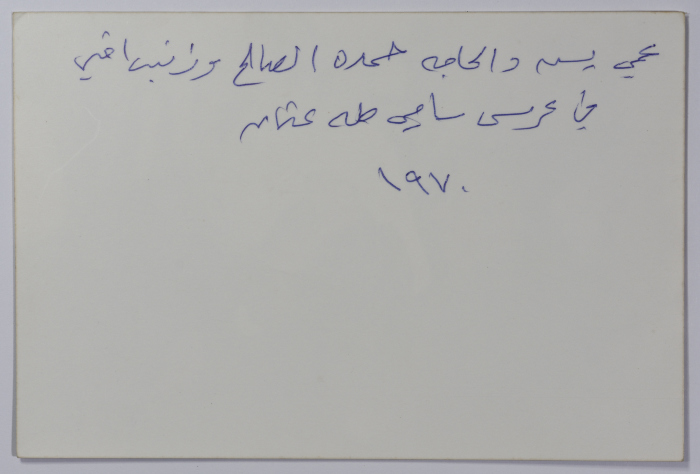 عمي يسن والحاجه حمده الصالح وزينب اختي
في عرس سامي طه عثمان
١٩٧٠